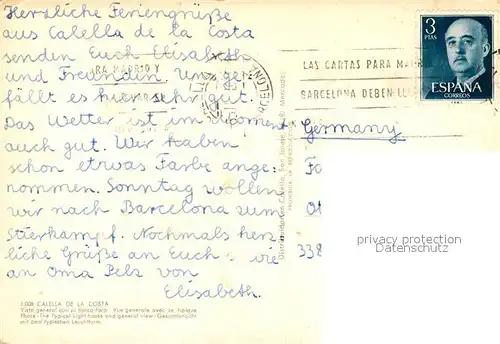 Herzliche Feriengrüße
aus Calella de la Costa
senden Euch Elisabeth
und Freundin. Uns ge-
fällt es hier sehr gut.
Das Wetter ist im Moment
auch gut. Wir haben
schon etwas Farbe ange-
nommen. Sonntag wollen
wir nach Barcelona zum
Stierkampf. Nochmals herz-
liche Grüße an Euch wie
an Oma Pelz von
Elisabeth.
CALELLA DE LA COSTA
Vista general con el típico Faro. Vue generale avec
Phare - The Typical Light house and general view - Gesamtansicht
mit dem typischen Leuchtturm.
LAS CARTAS PARA MADRID Y
BARCELONA DEBEN
3
PTAS
ESPAÑA
CORREOS
Germany
338
privacy protection
www.oldthing.de